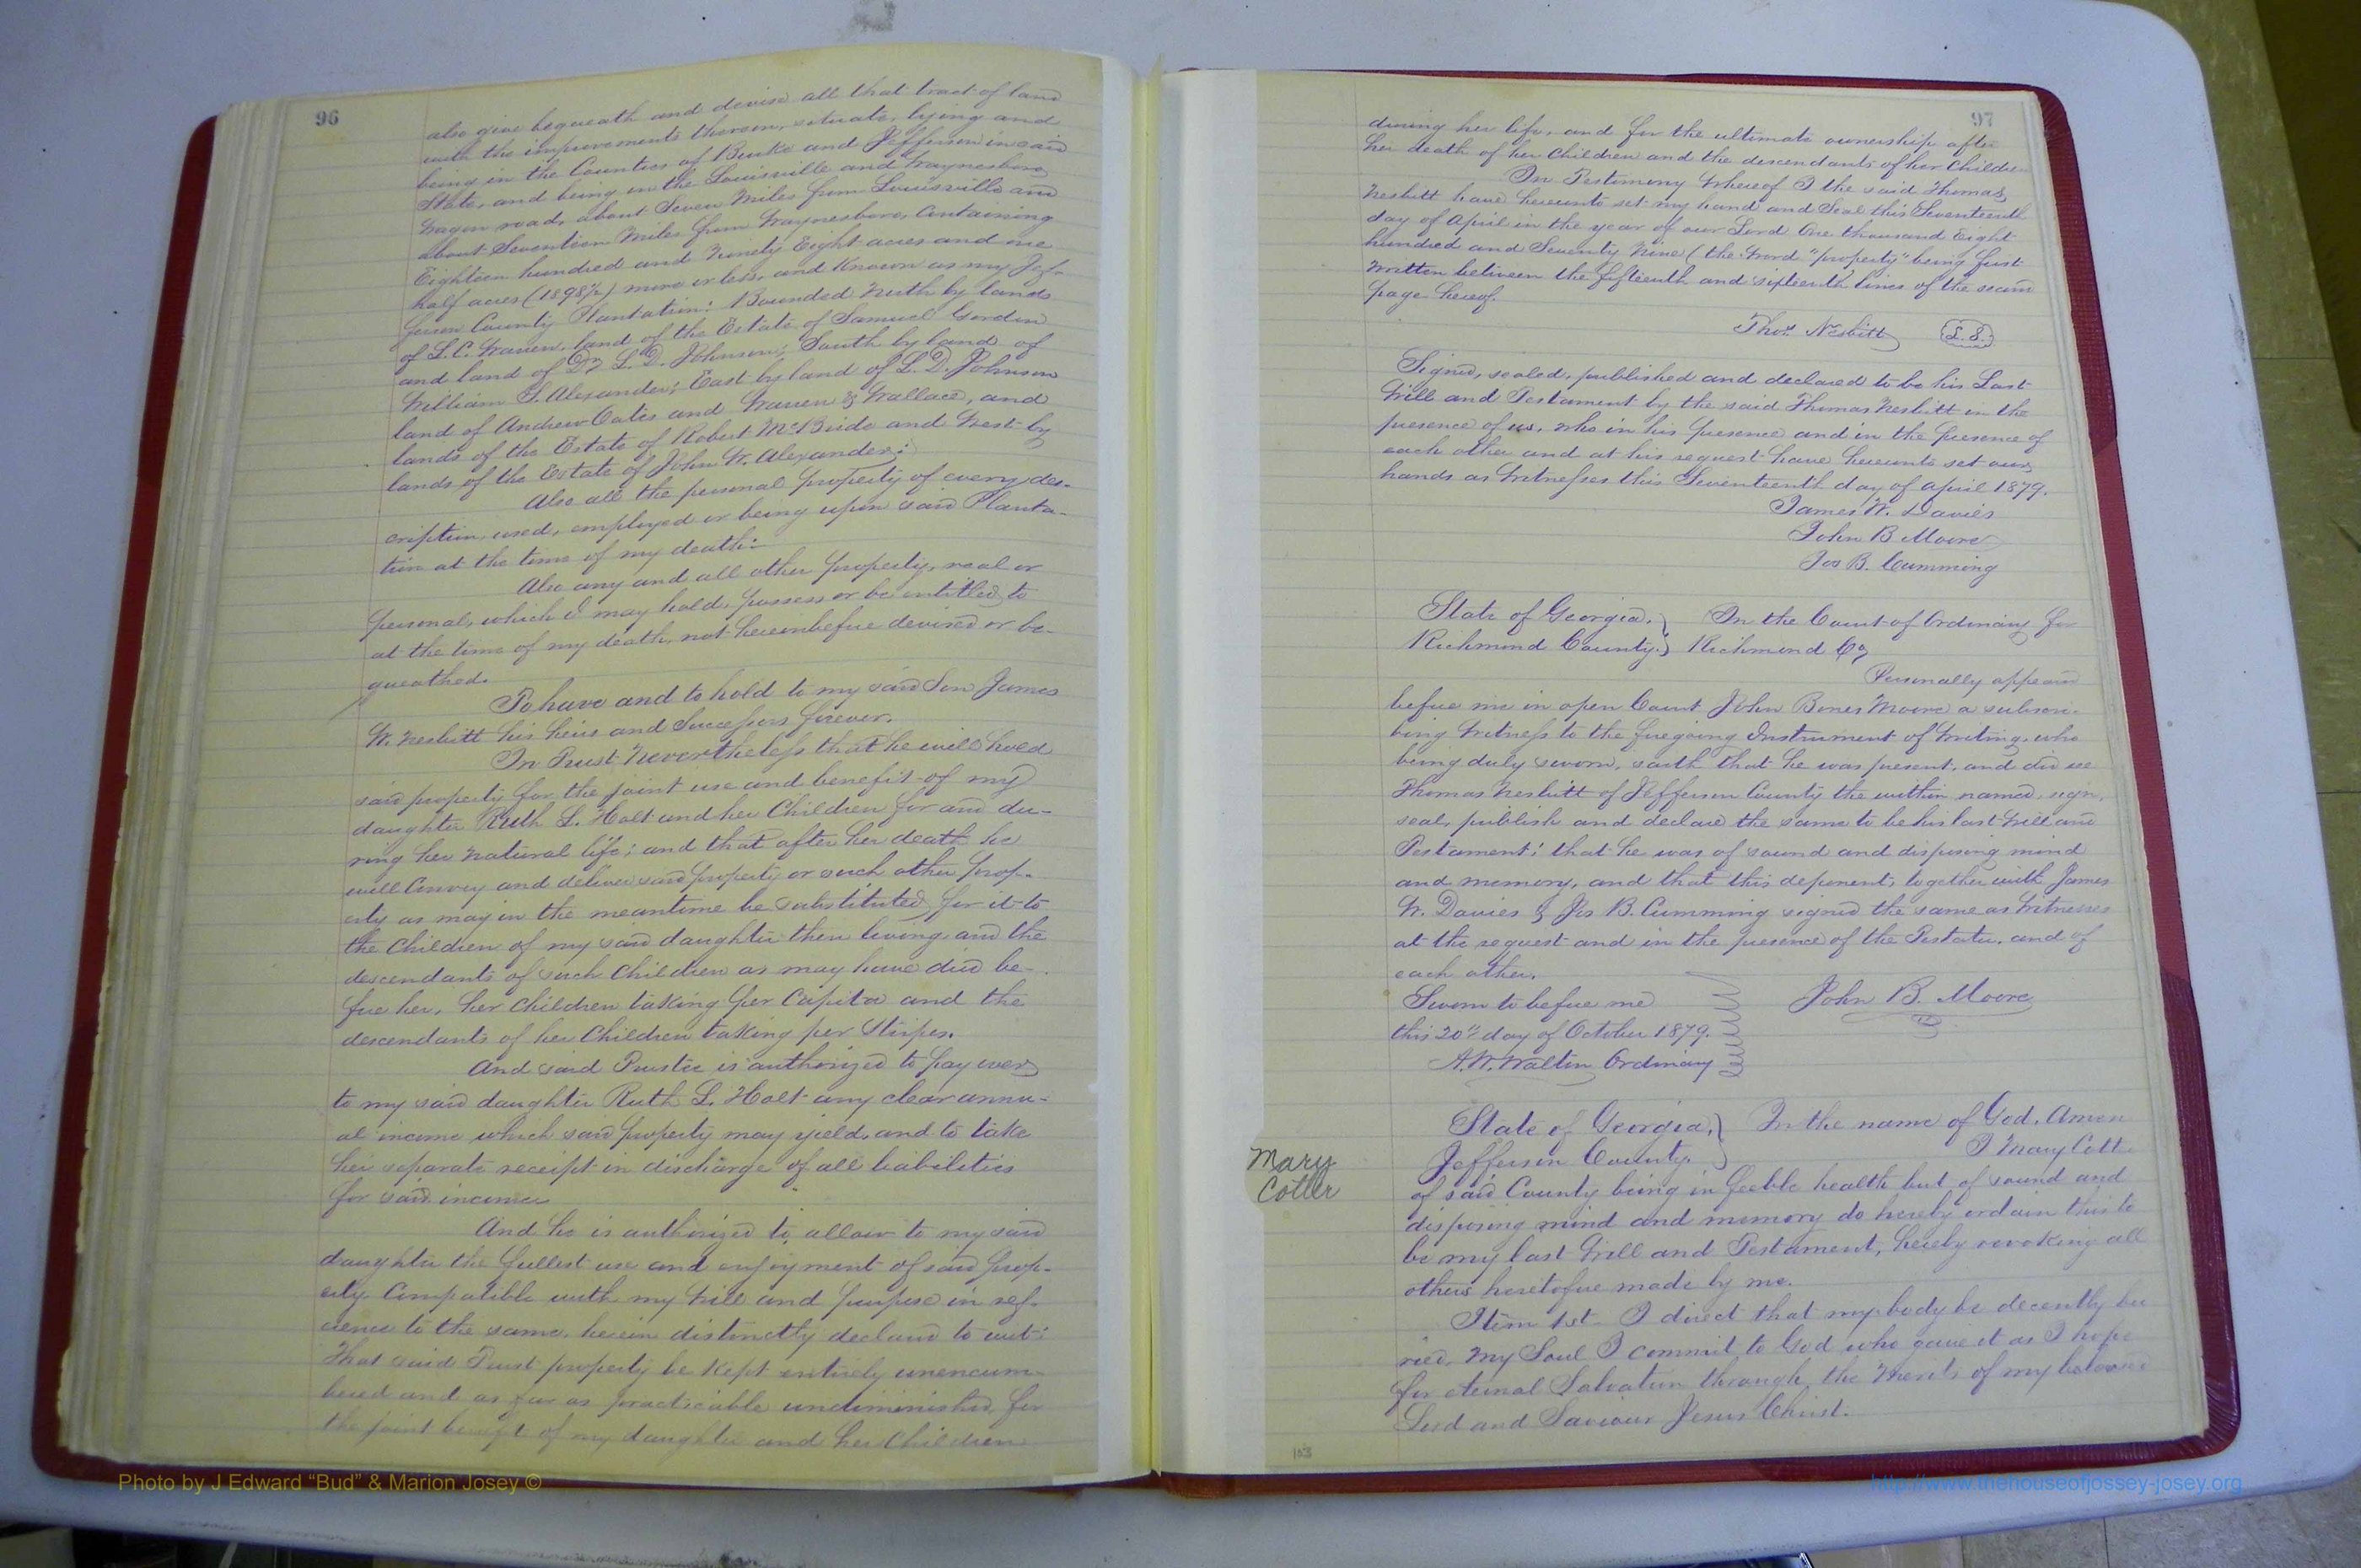 96
also give bequeath and devise all that tract of land
with the improvements thereon, situate, lying and
being in the Counties of Burke and Jefferson in said
State, and being on the Louisville and Waynesboro
Wagon road, about Seven Miles from Louisville and
about Seventeen Miles from Waynesboro, Containing
Eighteen hundred and Ninety Eight acres and one
half acres (1898½) more or less, and Known as my Jef-
ferson County Plantation: Bounded North by lands
of L. C. Warren, land of the Estate of Samuel Gordon
and land of Dr L. D. Johnson; South by land of
William S. Alexander; East by land of L. D. Johnson
land of Andrew Oates and Warren & Wallace, and
lands of the Estate of Robert McBride and West by
lands of the Estate of John W. Alexander:
Also all the personal property of every des-
cription, used, employed or being upon said Planta-
tion at the time of my death:
Also any and all other property, real or
personal, which I may hold, possess or be entitled to
at the time of my death, not hereinbefore devised or be-
queathed.
To have and to hold to my said Son James
W. Nesbitt his heirs and Successors forever.
In Trust Nevertheless that he will hold
said property for the joint use and benefit of my
daughter Ruth L. Holt and her Children for and du-
ring her natural life; and that after her death he
will Convey and deliver said property or such other prop-
erty as may in the meantime be substituted for it to
the Children of my said daughter then living and the
descendants of such Children as may have died be-
fore her, her children taking per Capita and the
descendants of her Children taking per Stirpes.
And said Trustee is authorized to pay over
to my said daughter Ruth L. Holt any clear annu-
al income which said property may yield, and to take
her separate receipt in discharge of all liabilities
for said income
And he is authorized to allow to my said
daughter the fullest use and enjoyment of said prop-
erty Compatible with my Will and purpose in ref-
erence to the same, herein distinctly declared to wit:
That said Trust property be kept entirely unencum-
bered and as far as practicable undiminished, for
the joint benefit of my daughter and her Children
97
during her life, and for the ultimate ownership after
her death of her Children and the descendants of her Children
In Testimony Whereof I the said Thomas
Nesbitt have hereunto set my hand and Seal this Seventeenth
day of April in the year of our Lord One thousand Eight
hundred and Seventy Nine (the Word "property" being first
Written between the fifteenth and sixteenth lines of the second
page hereof.
Thos. Nesbitt L.S.
Signed, sealed, published and declared to be his Last
Will and Testament by the said Thomas Nesbitt in the
presence of us, who in his presence and in the presence of
each other and at his request have hereunto set our
hands as Witnesses this Seventeenth day of April 1879.
James W. Davies
John B Moore
Jos B. Cumming
State of Georgia. } In the Court of Ordinary for
Richmond County. } Richmond Co,
Personally appeared
before me in open Court John Bones Moore a subscri-
bing Witness to the foregoing Instrument of Writing, who
being duly sworn, saith that he was present, and did see
Thomas Nesbitt of Jefferson County the within named, sign,
seal, publish and declare the same to be his last Will and
Testament; that he was of sound and disposing mind
and memory, and that this deponent, together with James
W. Davies & Jos B. Cumming signed the same as Witnesses
at the request and in the presence of the Testator, and of
each other.
Sworn to before me John B. Moore
this 20th day of October 1879.
A. W. Walton Ordinary
State of Georgia, } In the name of God, Amen
Jefferson County. } I Mary Cotter
Mary
Cotter
of said County being in feeble health but of sound and
disposing mind and memory do hereby ordain this to
be my last Will and Testament, hereby revoking all
others heretofore made by me.
Item 1st I direct that my body be decently bu
ried. My Soul I commit to God who gave it as I hope
for eternal Salvation through the Merits of my beloved
Lord and Saviour Jesus Christ.
153
Photo by J Edward “Bud” & Marion Josey ©
http://www.thehouseofjossey-josey.org